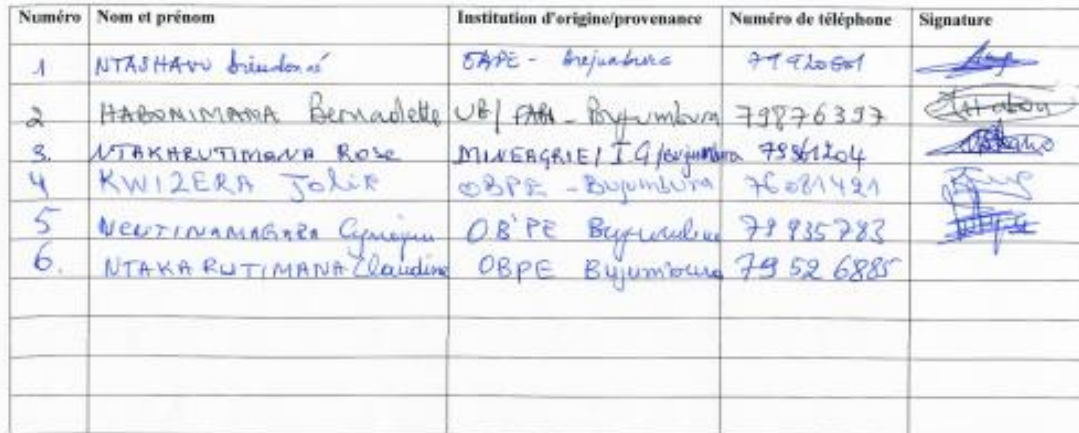 Numéro Nom et prénom Institution d'origine/provenance Numéro de téléphone Signature
1 NTASHAVU Dieudonné OBPE - Bujumbura
2 HABONIMANA Bernadette UB/ FABI - Bujumbura 79876397
3. NTAKARUTIMANA Rose MINEAGRIE/ IG/Bujumbura 79961204
4 KWIZERA Jolie OBPE - Bujumbura 76081421
5 OBPE Bujumbura 79935783
6. NTAKARUTIMANA Claudine OBPE Bujumbura 79526885